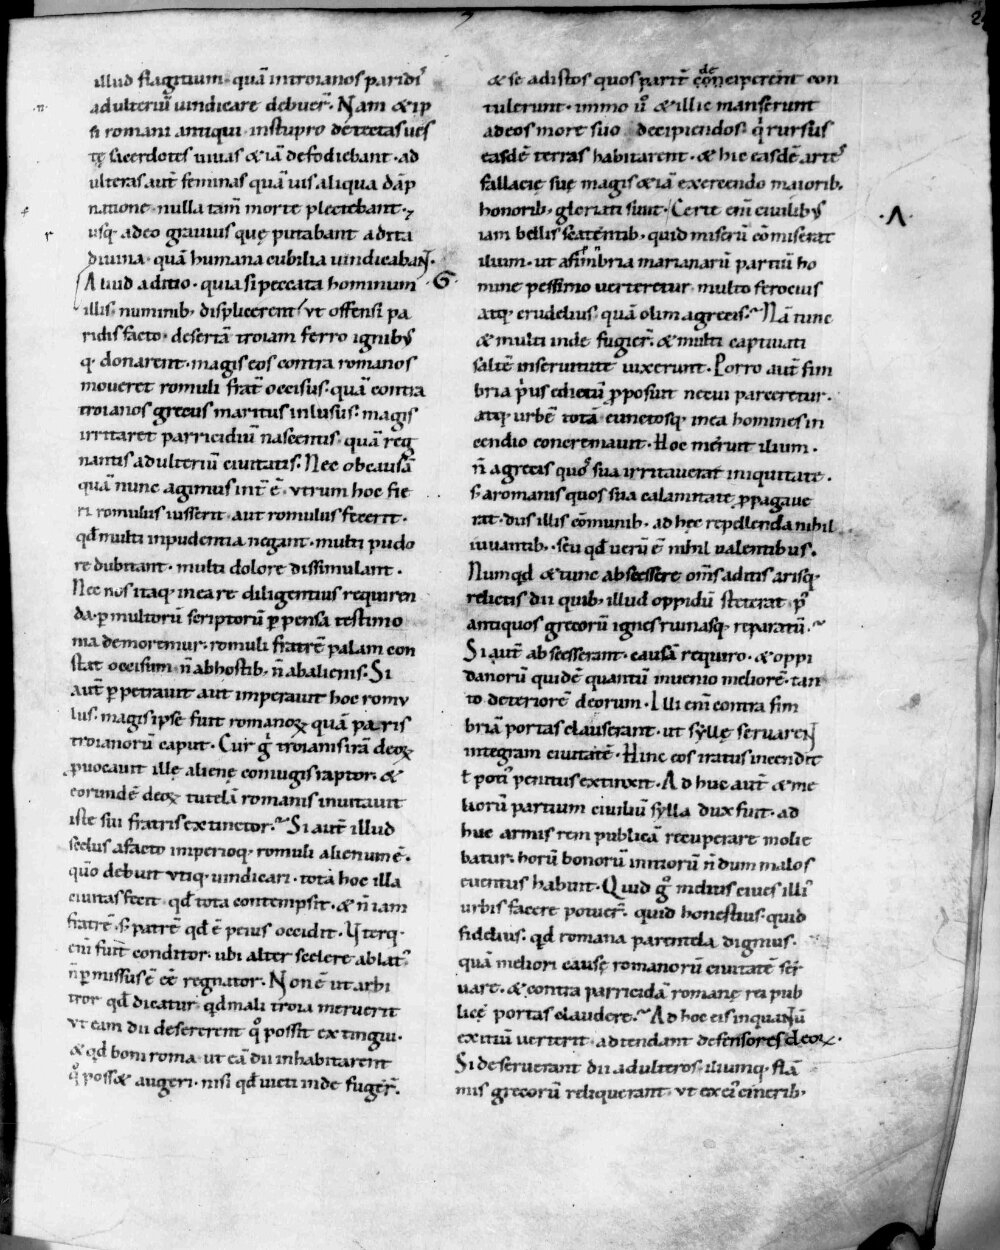 illud flagitium · quā introianos paridiˢ
adulteriū uindicare debuer̄. Nam & ip
si romani antiqui · instupro detectas ues
tę sacerdotes uiuas & iā defodiebant · ad
ulteras aut̄ feminas quāuis aliqua dāp
natione · nulla tam̄ morte plectebant ·
usq· adeo grauius quę putabant adita
diuina · quā humana cubilia uindicabaN̄ ·
Aliud aditio · quia si peccata hominum · G ·
illis numinib, displicerent / vt offensi pa
ridis facto · desertā troiam ferro ignibꝰ
q· donarent · magis eos contra romanos
moueret romuli frat̄ occisus · quā contra
troianos grecus maritus inlusus · magis
irritaret parricidiū nascentis · quā reg
nantis adulteriū ciuitatis. Nec obcausā
quā nunc agimus int̄ ē · vtrum hoc fie
ri romulus iusserit · aut romulus fecerit ·
qđ multi inpudentia negant · multi pudo
re dubitant · multi dolore dissimulant ·
Nec nos itaq· ineare diligentius requiren
da · p multorū scriptorū p pensa testimo
nia demoremur · romuli fratrē palam con
stat occisum · n̄ abhostib, n̄ abalienis · Si
aut̄ p petrauit aut imperauit hoc romu
lus · magis ipse fuit romanoꝝ quā paris
troianorū caput · Cur g̊ troianis irā deoꝝ
puocauit ille alienę coniugis raptor · &
eorundē deoꝝ tutelā romanis inuitauit
iste sui fratris extinctor · Si aut̄ illud
scelus afacto imperioq· romuli alienum ē ·
quō debuit vtiq· uindicari · tota hoc illa
ciuitas fecit · qđ tota contempsit · & n̄ iam
fratrē · s· patrē qđ ē peius occidit · Vterq·
enī fuit conditor · ubi alter scelere ablatꝰ
n̄ pmissus ē eē regnator · Non ē ut arbi
tror qđ dicatur · qđ mali troia meruerit
vt eam dii desererent q̊ possit extingui ·
& qđ boni roma · ut eā dii inhabitarent
q̊ poss& augeri · nisi qđ uicti inde fuger̄ ·
& se adistos quos parit̄ deciperent con
tulerunt · immo ů & illic manserunt
adeos more suo decipiendos · qⁱ rursus
easdē terras habitarent · & hic easdē arteˢ
fallacię suę magis & iā exercendo maiorib,
honorib, gloriati sunt · Certe enī ciuilibꝰ
iam bellis scatentib, quid miserū cōmiserat · Λ ·
ilium · ut afimbria marianarū partiū ho
mine pessimo uerteretur · multo ferocius
atq· crudelius · quā olim agrecis · Nā tunc
& multi inde fuger̄ · & multi captiuati
saltē inseruitute uixerunt · Porro aut̄ fim
bria pⁱus edictū pposuit necui parceretur ·
atq· urbē totā cunctosq· inea homines in
cendio concremauit · Hoc meruit ilium ·
n̄ agrecis quoˢ sua irritauerat iniquitate ·
s· aromanis quos sua calamitate ppagaue
rat · diis illis cōmunib, ad hęc repellenda nihil
iuuantib, · seu qđ uerū ē nihil ualentibus ·
Numqđ & tunc abscessere om̄s aditis arisq·
relictis dii quib, illud oppidū steterat p̊
antiquos grecorū ignes ruinasq· reparatū ·
Si aut̄ abscesserant · causā requiro · & oppi
danorū quidē quantū inuenio meliorē · tan
to deteriorē deorum · Illi enī contra fim
briā portas clauserant · ut syllę seruareN̄
integram ciuitatē · Hinc eos iratus incendit
ł potiˢ penitus extinxit · Ad huc aut̄ & me
liorū partium ciuiliū sylla dux fuit · ad
huc armis rem publicā recuperare molie
batur · horū bonorū initiorū n̄dum malos
euentus habuit · Quid g̊ melius ciues illiˢ
urbis facere potuer̄ · quid honestius · quid
fidelius · qđ romana parentela dignius ·
quā meliori causę romanorū ciuitatē ser
uare · & contra parricidā romanę rei pub
licę portas claudere · Ad hoc eis inquaNtū
exitiū uerterit · adtendant defensores deoꝝ ·
Si deseruerant dii adulteros · iliumq· flā
mis grecorū reliquerant · vt exeiˢ cinerib,